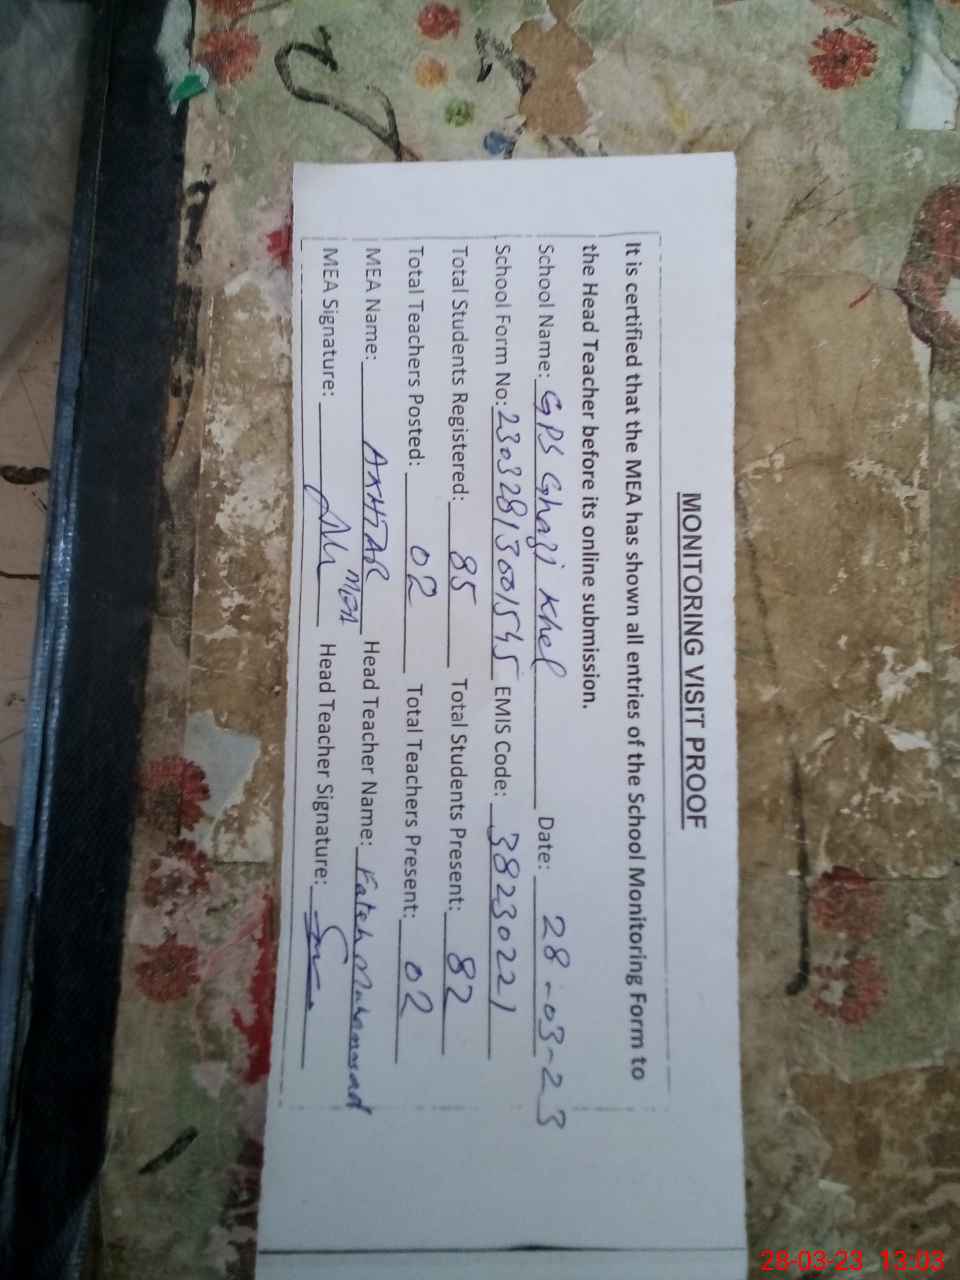 MONITORING VISIT PROOF
It is certified that the MEA has shown all entries of the School Monitoring Form to
the Head Teacher before its online submission.
School Name: GPS Ghazi Khel Date: 28-03-23
School Form No: 23032813001545 EMIS Code: 38230221
Total Students Registered: 85 Total Students Present: 82
Total Teachers Posted: 02 Total Teachers Present: 02
MEA Name: AKHTAR MEA Head Teacher Name: Fateh Muhammad
MEA Signature: Head Teacher Signature:
28-03-23 13:03